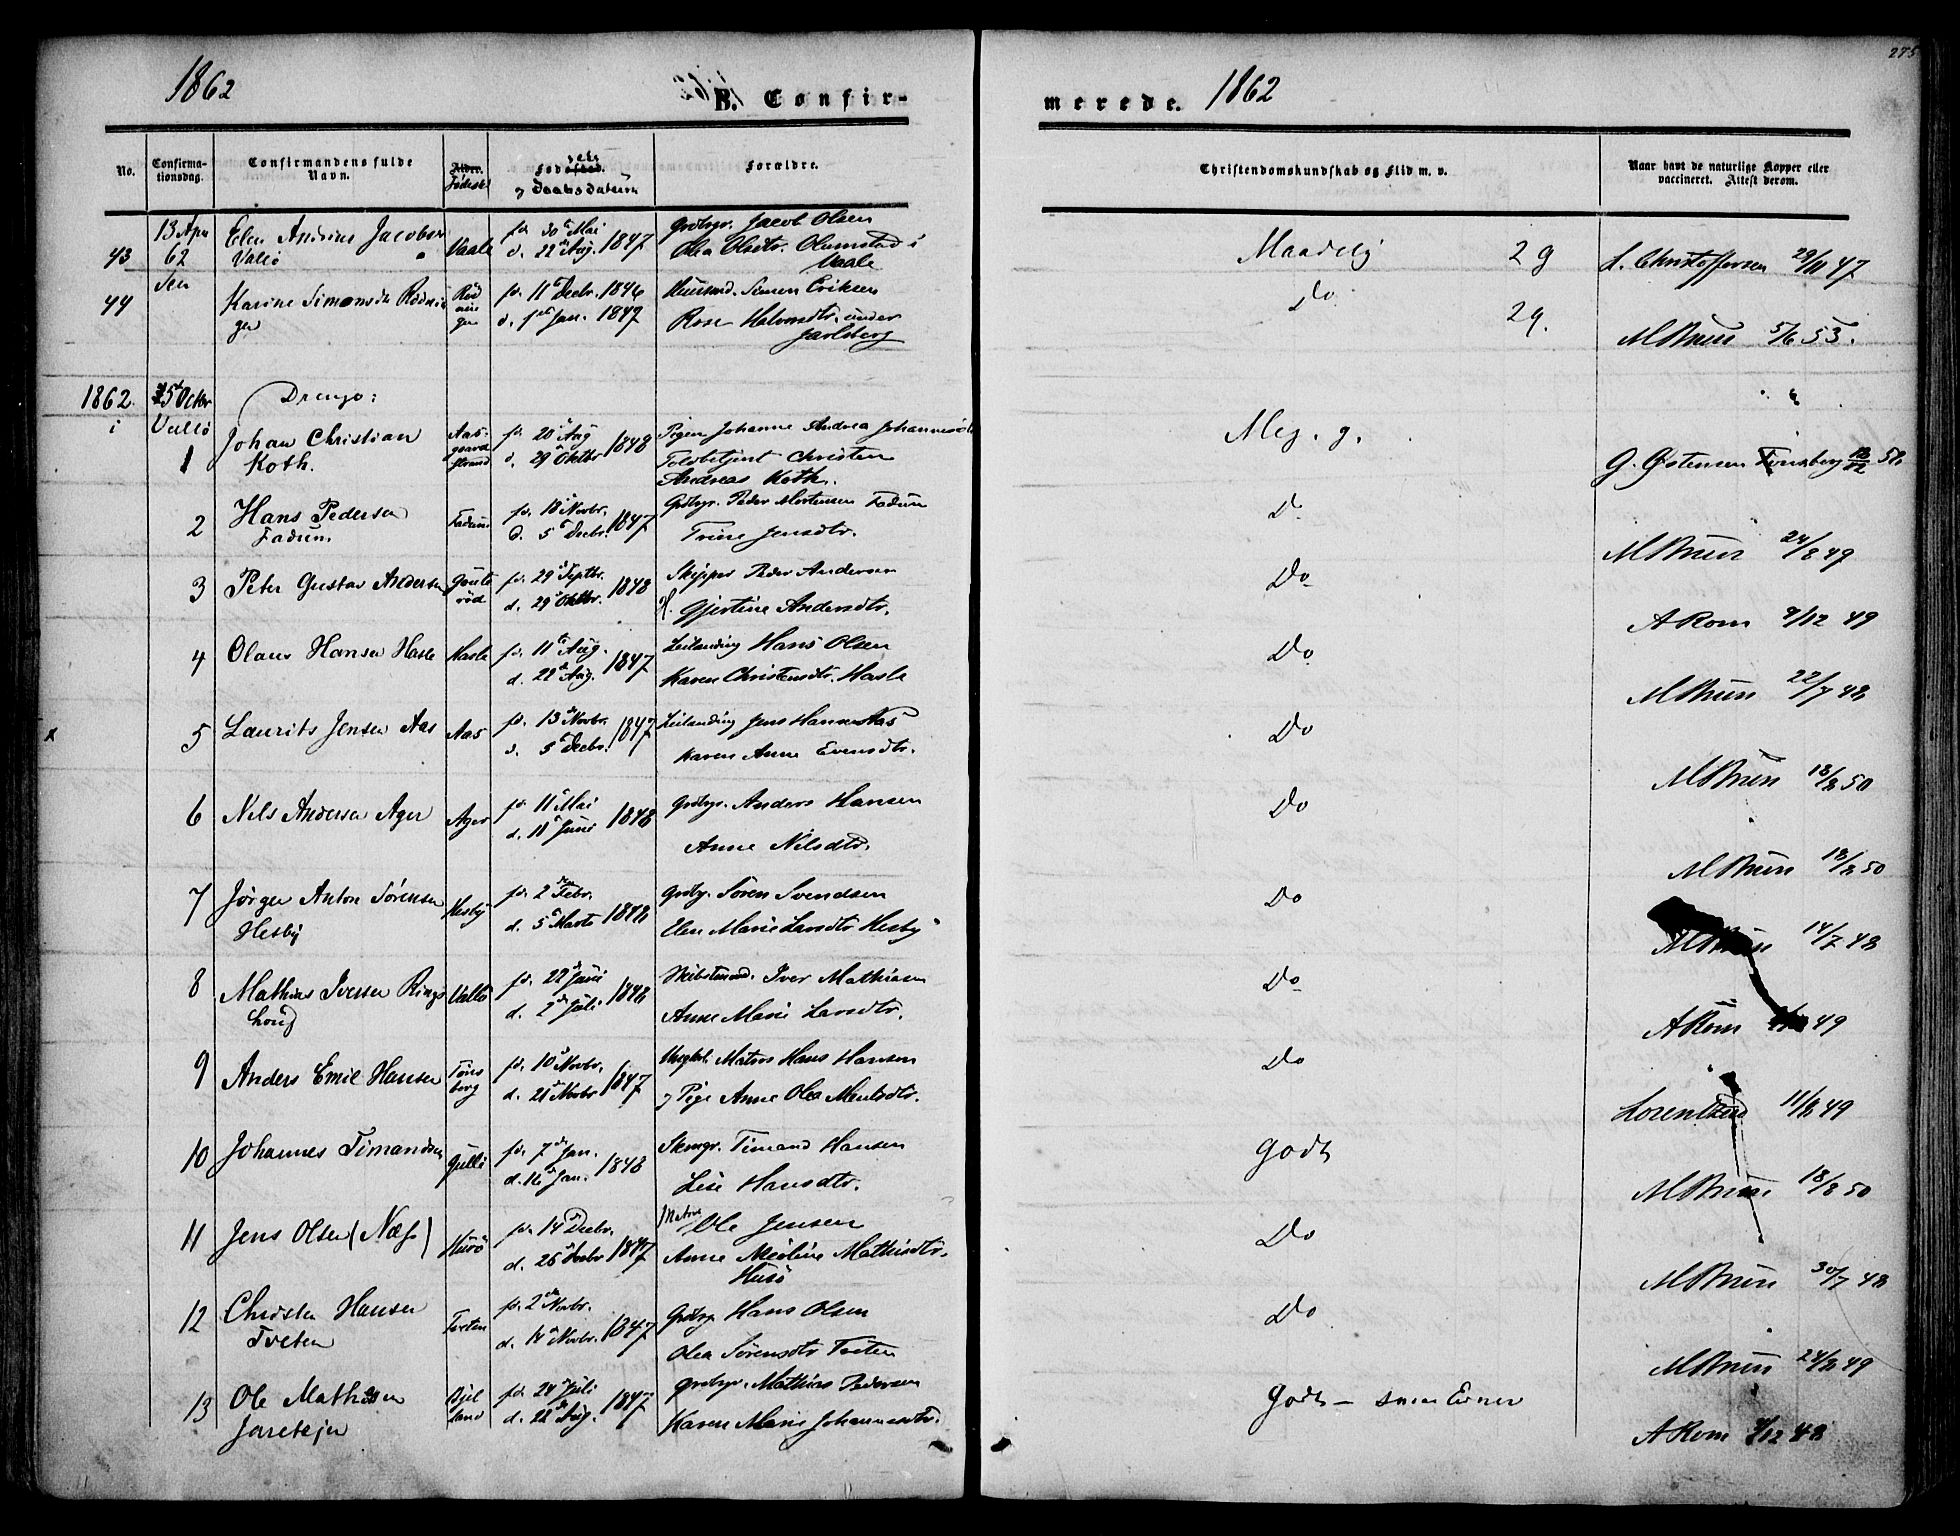 275
1862
B. Confir-
merede. 1862
No.
Confirma-
tionsdag.
Confirmandens fulde
Navn.
Alder.
Fødested
Fødested.
og Daabsdatum
Forældre.
Christendomskundskab og Flid m. v.
Naar havt de naturlige Kopper eller
vaccineret. Attest derom.
43 13 Apr 62 Vaale fd. 30 Mai d. 22 Aug. 1847 Grdbgr. Jacob Olsen
Vallø Olea Olsdtr. Olumstad i
Vaale
Maadelig 2 g L. Christoffersen 29/11 47
44 Karine Simonsdtr fd. 11 Decbr. 1846 Husmd. Simen Eriksen
d. 1 Jan. 1847 under
Jarlsberg
Do 2 g. M Bruu 5/6 53.
1862. 5t Octbr Drenge:
i Vallø
1 Johan Christian
Koth. Aas-
gaard
strand fd. 20 Aug
d. 29 Oktbr 1848 Pigen Johanne Andrea Johannesdtr
Toldbetjent Christen
Andreas Koth.
Meg. g. G. Østensen Tønsberg
2 Hans Pedersen
Fadum. Fadum fd. 18 Novbr.
d. 5 Decbr. 1847 Grdbgr. Peder Mortensen Fadum
Trine Jensdtr.
Do M Bruu 24/8 49
3 Peter Gustav Andersen fd. 29 Septbr.
d. 29 Oktbr. 1848 Skipper Peder Andersen
H. Gjertine Andersdtr.
Do A Rom 9/12 49
4 Olaus Hansen Hasle Hasle fd. 11 Aug.
d. 22 Aug. 1847 Leilænding Hans Olsen
Karen Christensdtr. Hasle
Do M Bruu 22/7 48
x 5 Laurits Jensen Aas Aas fd. 13 Novbr.
d. 5 Decbr. 1847 Leilænding Jens Hansen Aas
Karen Anne Evensdtr.
Do M Bruu 18/8 50
6 Nels Andersen Ager Ager fd. 11 Mai
d. 11 Juni 1848 Grdbgr. Anders Hansen
Anne Nilsdtr.
Do M Bruu 18/8 50
7 Jørgen Anton Sørensen
Hesby Hesby fd. 2 Febr.
d. 5 Marts 1848 Grdbgr. Søren Svendsen
Elen Marie Larsdtr Hesby
Do M Bruu 14/7 48
8 Mathias Iversen Rings
houg Vallø fd. 22 Juni
d. 2 Juli 1848 Skibstmrmd. Iver Mathiasen
Anne Marie Larsdtr.
Do A Rom 49
9 Anders Emil Hansen Tøns
berg fd. 10 Novbr.
d. 21 Novbr 1847 Matros Hans Hansen
og Pige Anne Olea Mentsdtr.
Do Lorentzen 11/8 49
10 Johannes Timandsen fd. 7 Jan.
d. 16 Jan. 1848 Timand Hansen
Lise Hansdtr.
Godt M Bruu 18/8 50
11 Jens Olsen (Næss) Husø fd. 14 Decbr.
d. 26 Decbr 1847 Matros Ole Jensen
Anne Mathisdtr.
Husø
Do M Bruu 30/7 48
12 Christen Hansen
Tveten Tveten fd. 2 Novbr.
d. 14 Novbr. 1847 Grdbgr. Hans Olsen
Olea Sørensdtr Tveten
Do M Bruu 24/8 49
13 Ole Mathisen
Jareteje fd. 24 Juli
d. 22 Aug. 1847 Grdbgr. Mathias Pedersen
Karen Marie Johannesdtr.
Godt – A Rom 9/12 48